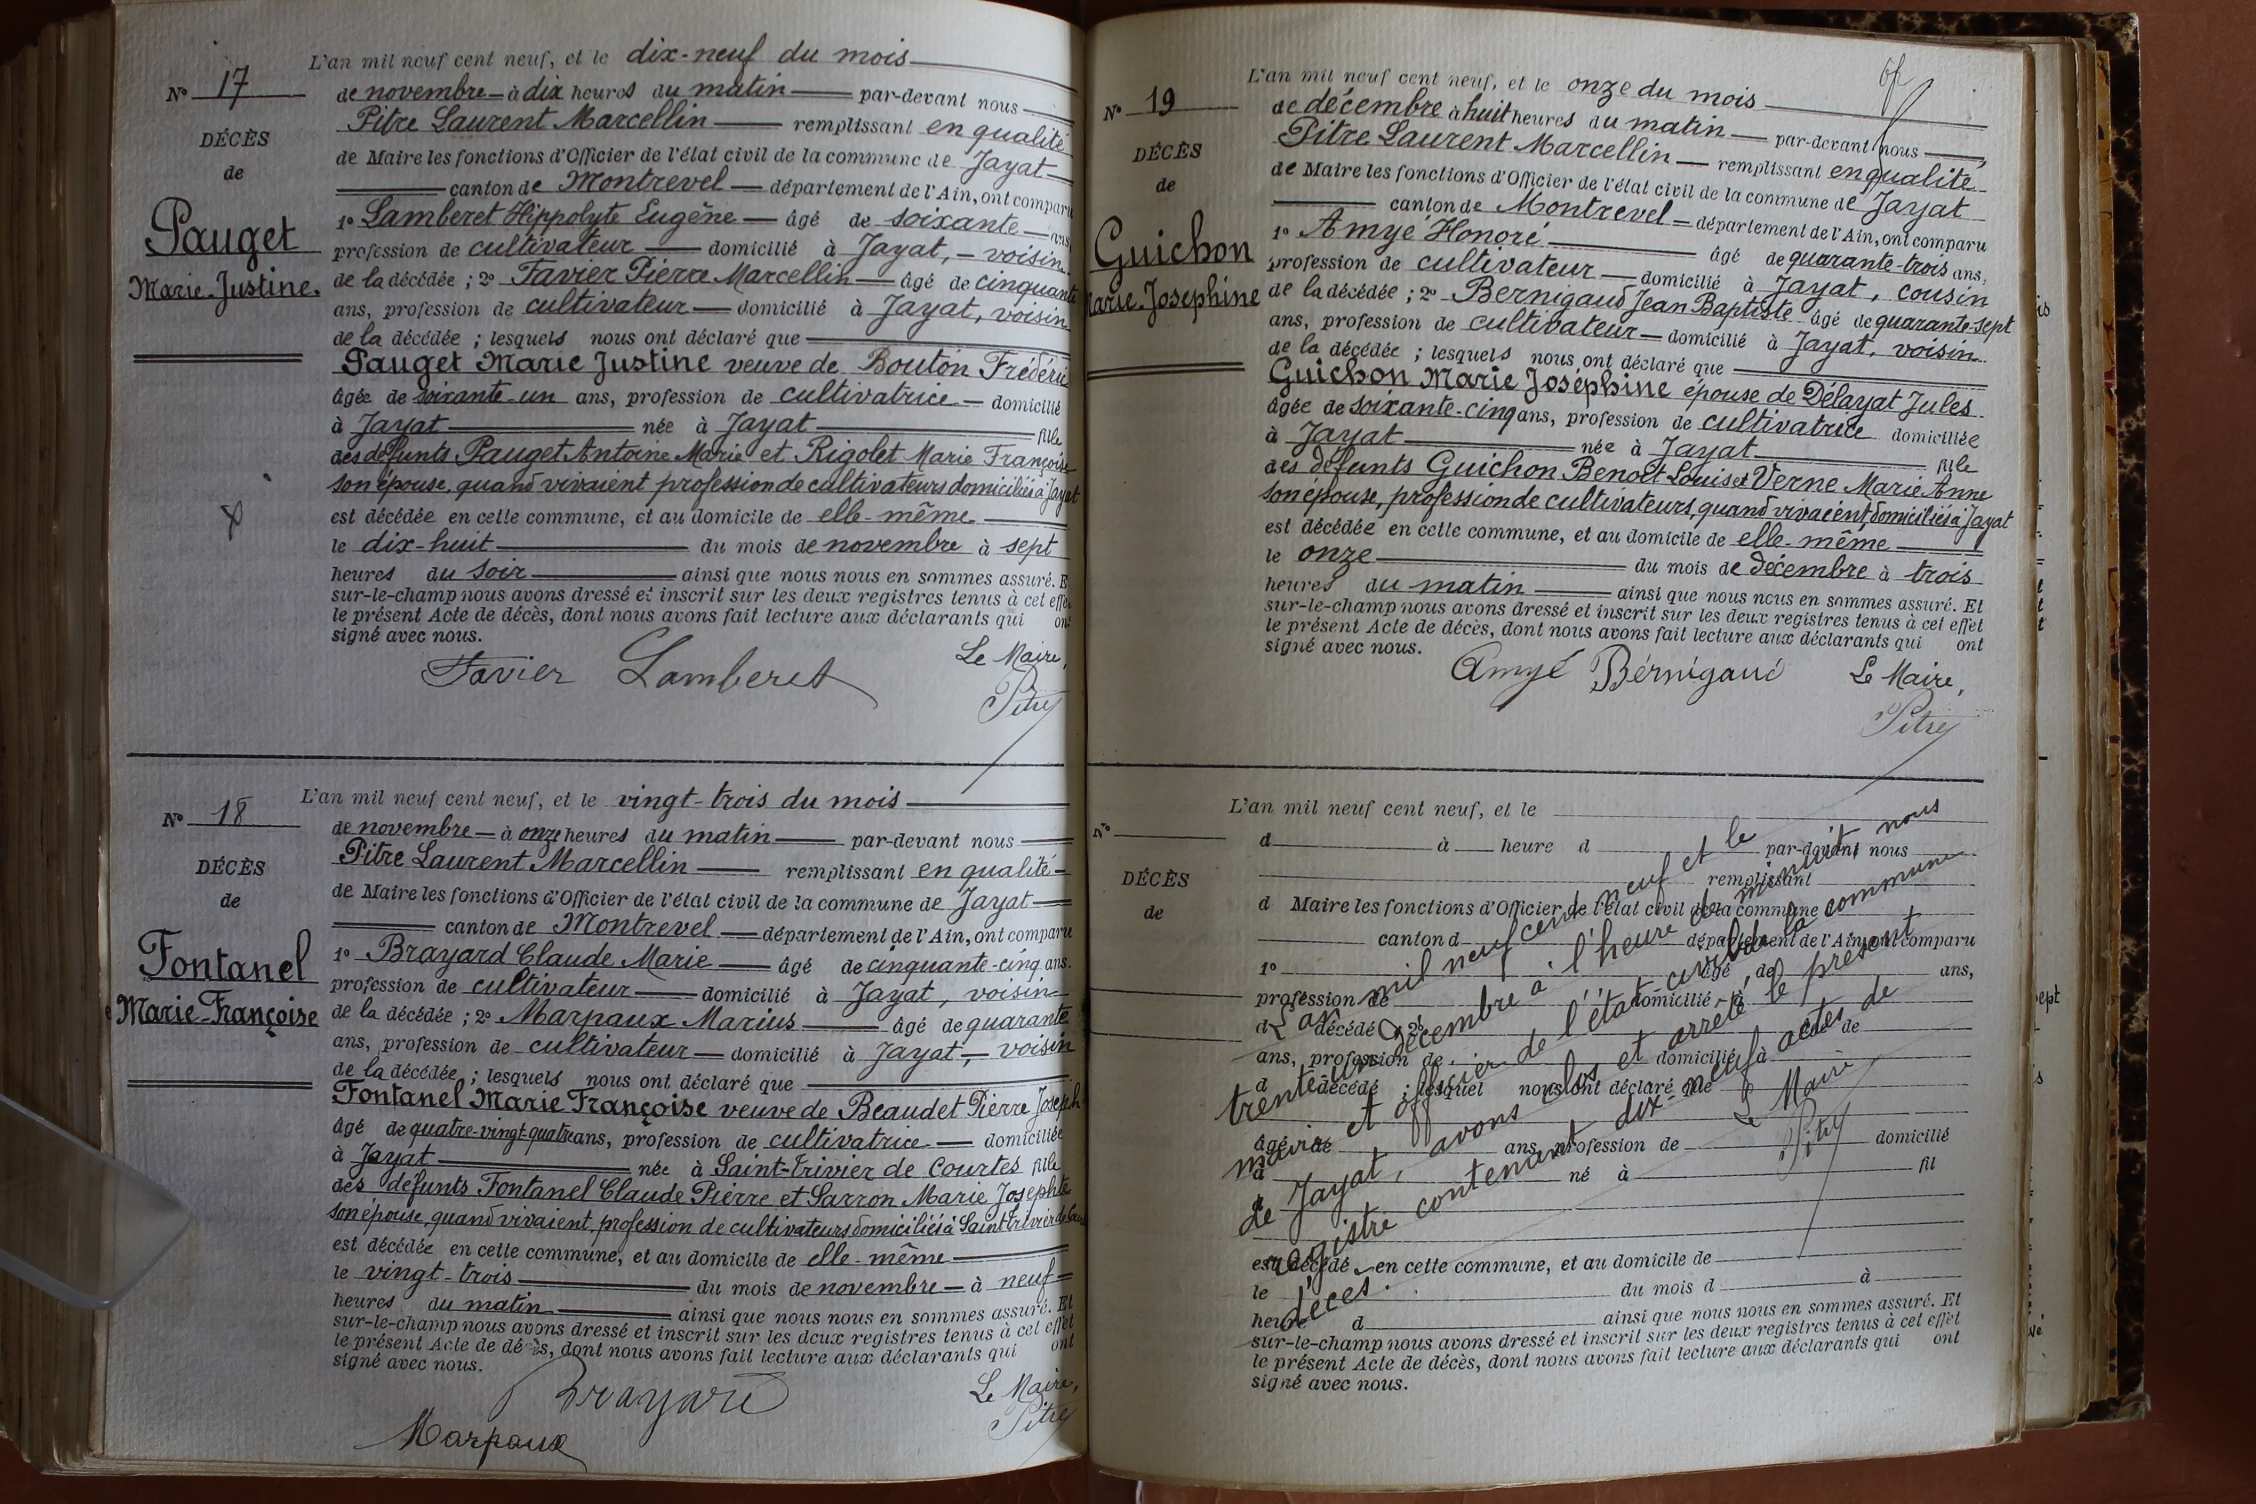 L'an mil neuf cent neuf, et le dix-neuf du mois
N° 17
de novembre à dix heures du matin par-devant nous
Pitre Laurent Marcellin remplissant en qualité
DÉCÈS
de Maire les fonctions d'Officier de l'état civil de la commune de Jayat
de
canton de Montrevel département de l'Ain, ont comparu
1° Lamberet Hippolyte Eugène âgé de soixante ans
Pauget
profession de cultivateur domicilié à Jayat, voisin
Marie-Justine.
de la décédée ; 2° Favier Pierre Marcellin âgé de cinquante
ans, profession de cultivateur domicilié à Jayat, voisin
de la décédée ; lesquels nous ont déclaré que
Pauget Marie Justine veuve de Bouton Frédéric
âgée de soixante-un ans, profession de cultivatrice domicilié
à Jayat née à Jayat fille
des défunts Pauget Antoine Marie et Rigolet Marie Françoise
son épouse, quand vivaient profession de cultivateurs domiciliés à Jayat
est décédée en cette commune, et au domicile de elle-même
le dix-huit du mois de novembre à sept
heures du soir ainsi que nous nous en sommes assuré. E
sur-le-champ nous avons dressé et inscrit sur les deux registres tenus à cet effet
le présent Acte de décès, dont nous avons fait lecture aux déclarants qui ont
signé avec nous.
Favier Lamberet Le Maire,
Pitre
L'an mil neuf cent neuf, et le vingt-trois du mois
N° 18
de novembre à onze heures du matin par-devant nous
Pitre Laurent Marcellin remplissant en qualité
DÉCÈS
de Maire les fonctions d'Officier de l'état civil de la commune de Jayat
de
canton de Montrevel département de l'Ain, ont comparu
Fontanel
1° Brayard Claude Marie âgé de cinquante-cinq ans.
profession de cultivateur domicilié à Jayat, voisin
Marie-Françoise
de la décédée ; 2° Marpaux Marius âgé de quarante
ans, profession de cultivateur domicilié à Jayat, voisin
de la décédée ; lesquels nous ont déclaré que
Fontanel Marie Françoise veuve de Beaudet Pierre Joseph
âgé de quatre-vingt-quatre ans, profession de cultivatrice domiciliée
à Jayat née à Saint-Trivier de Courtes fille
des défunts Fontanel Claude Pierre et Sarron Marie Josephte
son épouse, quand vivaient, profession de cultivateurs domiciliés à Saint Trivier de
est décédée en cette commune, et au domicile de elle-même
le vingt-trois du mois de novembre à neuf
heures du matin ainsi que nous nous en sommes assuré. Et
sur-le-champ nous avons dressé et inscrit sur les deux registres tenus à cet effet
le présent Acte de décès, dont nous avons fait lecture aux déclarants qui ont
signé avec nous.
Brayard Le Maire,
Marpaux Pitre
L'an mil neuf cent neuf, et le onze du mois
N° 19
de décembre à huit heures du matin par-devant nous
Pitre Laurent Marcellin remplissant en qualité
DÉCÈS
de Maire les fonctions d'Officier de l'état civil de la commune de Jayat
de
canton de Montrevel département de l'Ain, ont comparu
1° Amyé Honoré âgé de quarante-trois ans,
Guichon
profession de cultivateur domicilié à Jayat, cousin
Marie-Josephine
de la décédée ; 2° Bernigaud Jean Baptiste âgé de quarante-sept
ans, profession de cultivateur domicilié à Jayat, voisin
de la décédée ; lesquels nous ont déclaré que
Guichon Marie Joséphine épouse de Délayat Jules
âgée de soixante-cinq ans, profession de cultivatrice domiciliée
à Jayat née à Jayat fille
des défunts Guichon Benoît Louis et Verne Marie Anne
son épouse, profession de cultivateurs, quand vivaient, domiciliés à Jayat
est décédée en cette commune, et au domicile de elle-même
le onze du mois de décembre à trois
heures du matin ainsi que nous nous en sommes assuré. Et
sur-le-champ nous avons dressé et inscrit sur les deux registres tenus à cet effet
le présent Acte de décès, dont nous avons fait lecture aux déclarants qui ont
signé avec nous.
Amyé Bérnigaud Le Maire,
Pitre
L'an mil neuf cent neuf, et le
N°
d à heure d par-devant nous
remplissant
DÉCÈS
d Maire les fonctions d'Officier de l'état civil de la commune
de
canton d département de l'Ain, ont comparu
1° âgé de ans,
profession de domicilié à
d décédé ; 2° âgé de
ans, profession de domicilié à
d décédé ; lesquel nous ont déclaré que
âgé de ans, profession de domicilié
à né à fil
est décédé en cette commune, et au domicile de
le du mois d à
heure d ainsi que nous nous en sommes assuré. Et
sur-le-champ nous avons dressé et inscrit sur les deux registres tenus à cet effet
le présent Acte de décès, dont nous avons fait lecture aux déclarants qui ont
signé avec nous.
L'an mil neuf cent neuf et le
trente un décembre à l'heure de minuit, nous
maire et officier de l'état-civil de la commune
de Jayat, avons clos et arrêté le présent
registre contenant dix-neuf actes de
décès.
Le Maire
Pitre